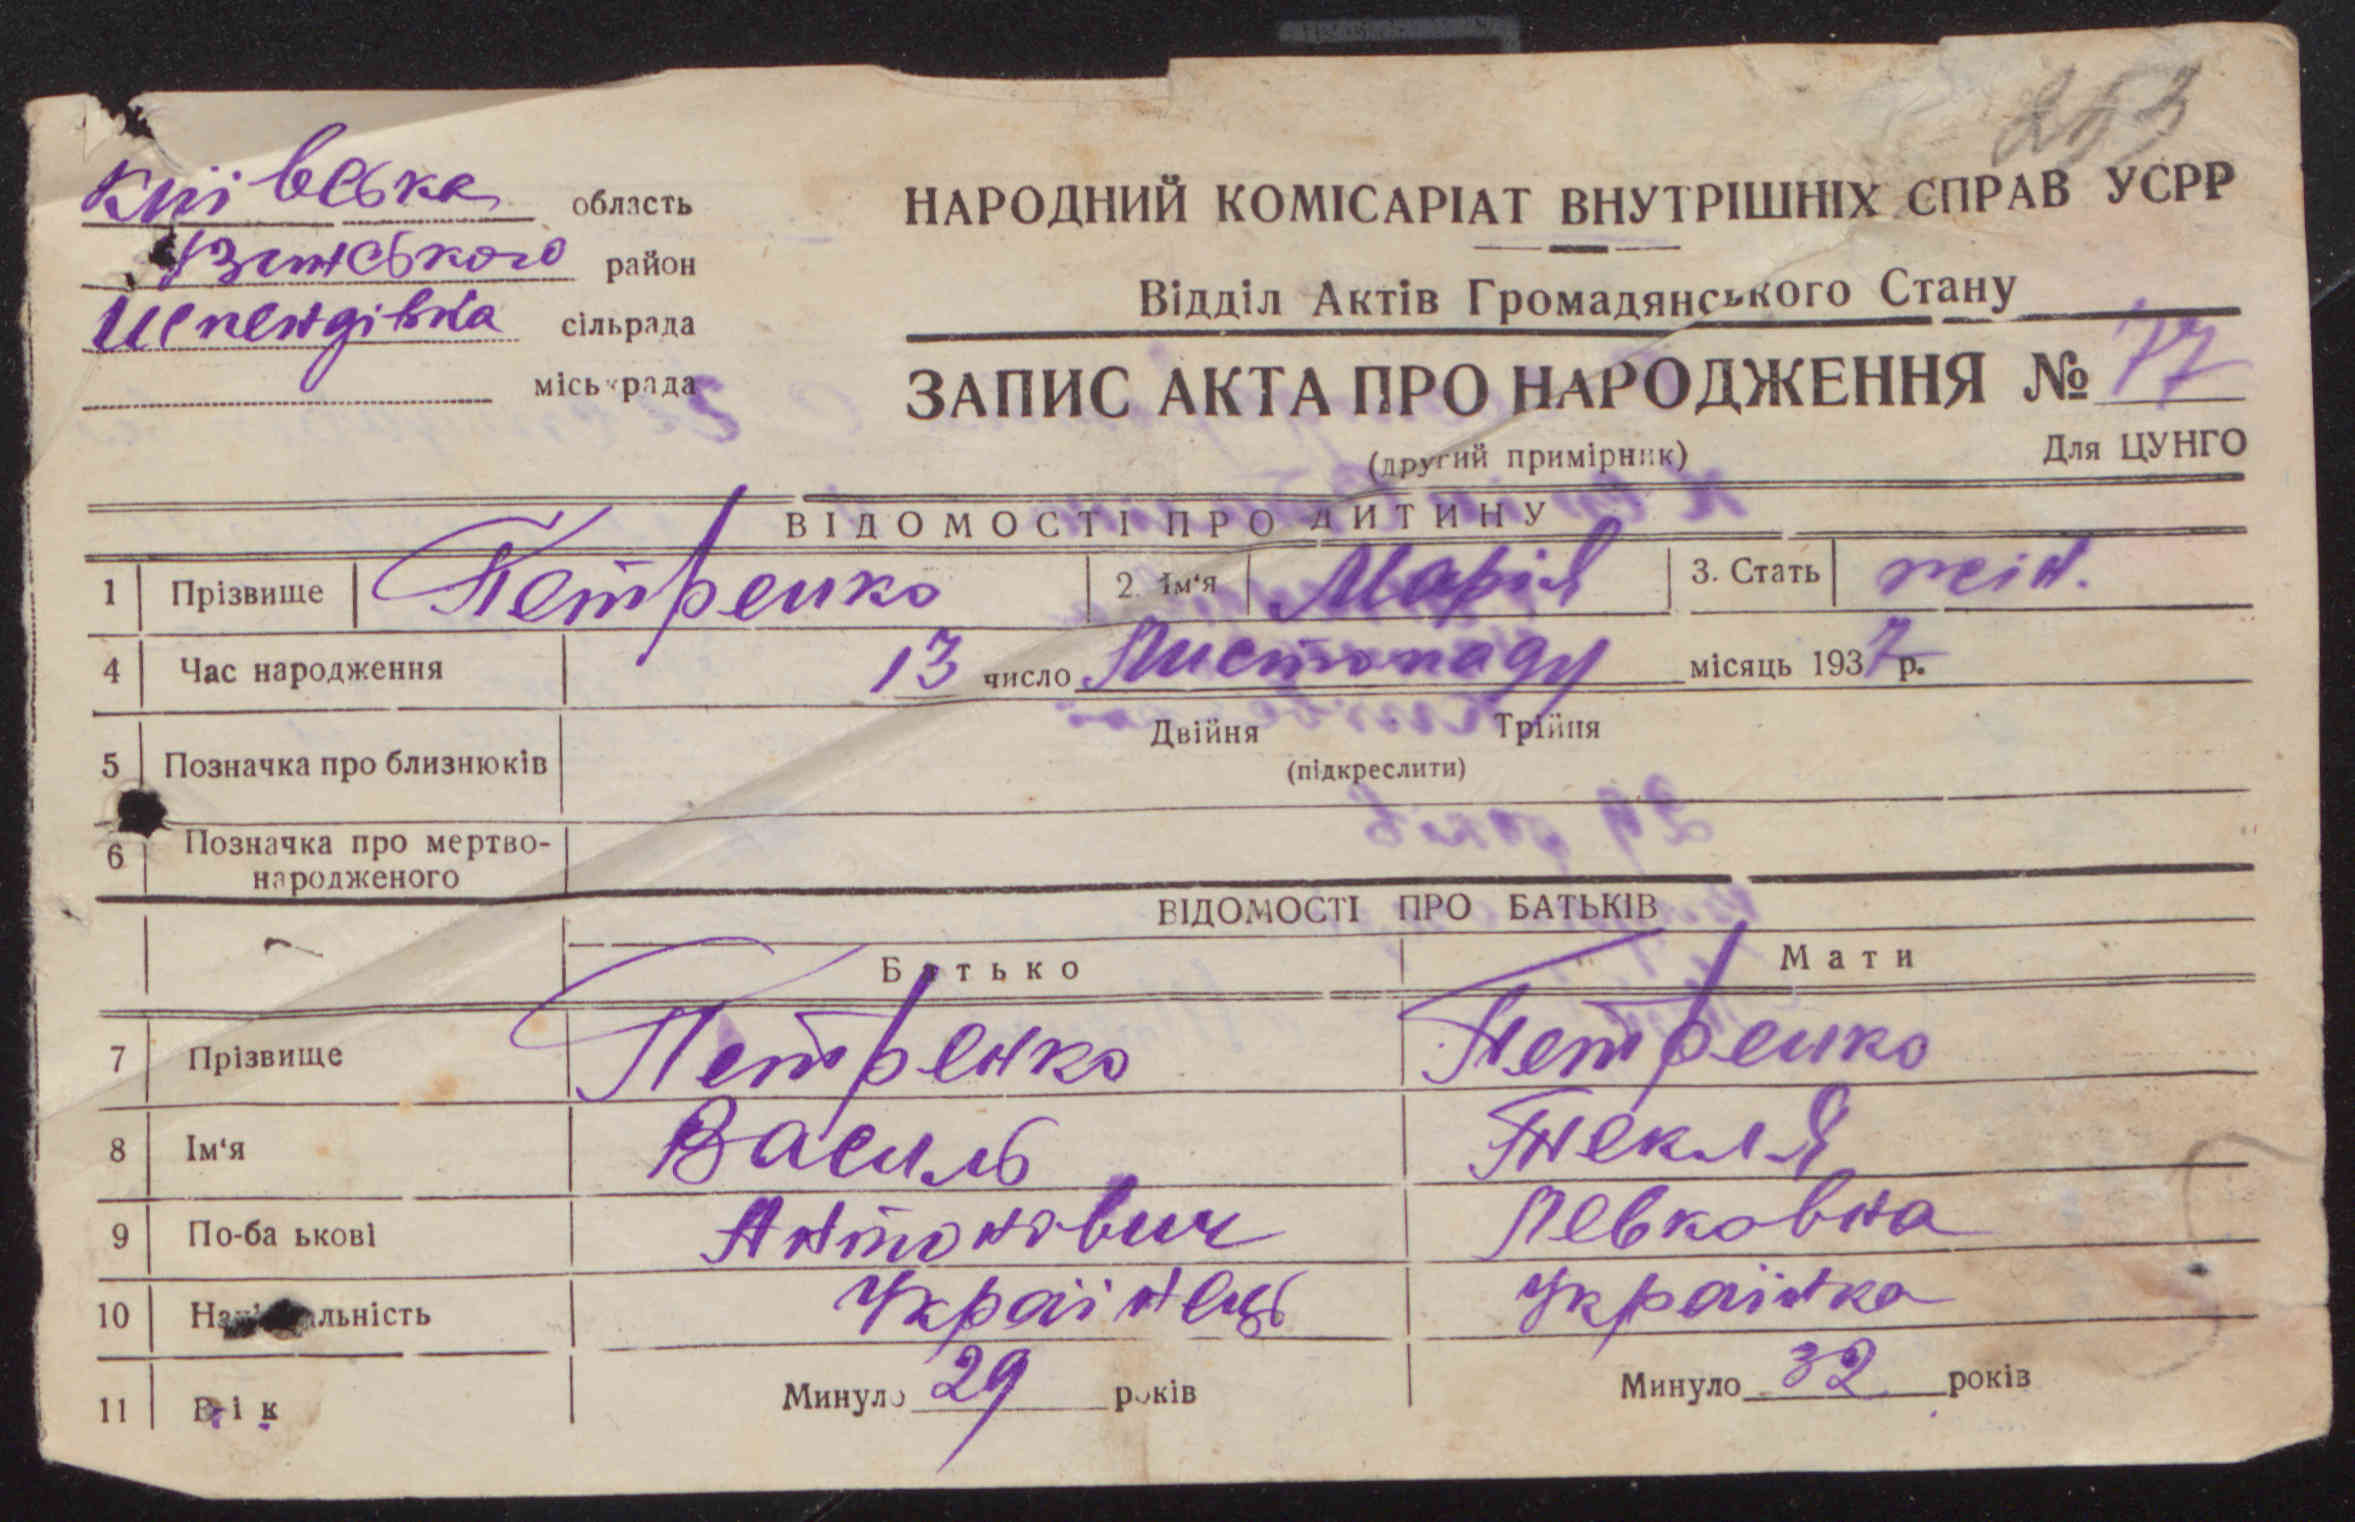 253
Київська область
Узинського район
Шпендівка сільрада
міськрада
НАРОДНИЙ КОМІСАРІАТ ВНУТРІШНІХ СПРАВ УСРР
Відділ Актів Громадянського Стану
ЗАПИС АКТА ПРО НАРОДЖЕННЯ № 77
(другий примірник) Для ЦУНГО
ВІДОМОСТІ ПРО ДИТИНУ
1 Прізвище Петренко 2. Ім'я Марія 3. Стать жін.
4 Час народження 13 число Листопаду місяць 1937 р.
5 Позначка про близнюків Двійня Трійня
(підкреслити)
6 Позначка про мертво-
народженого
ВІДОМОСТІ ПРО БАТЬКІВ
Батько Мати
7 Прізвище Петренко Петренко
8 Ім'я Василь Текля
9 По-ба ькові Антонович Левковна
10 Національність Українець Українка
11 Вік Минуло 29 років Минуло 32 років